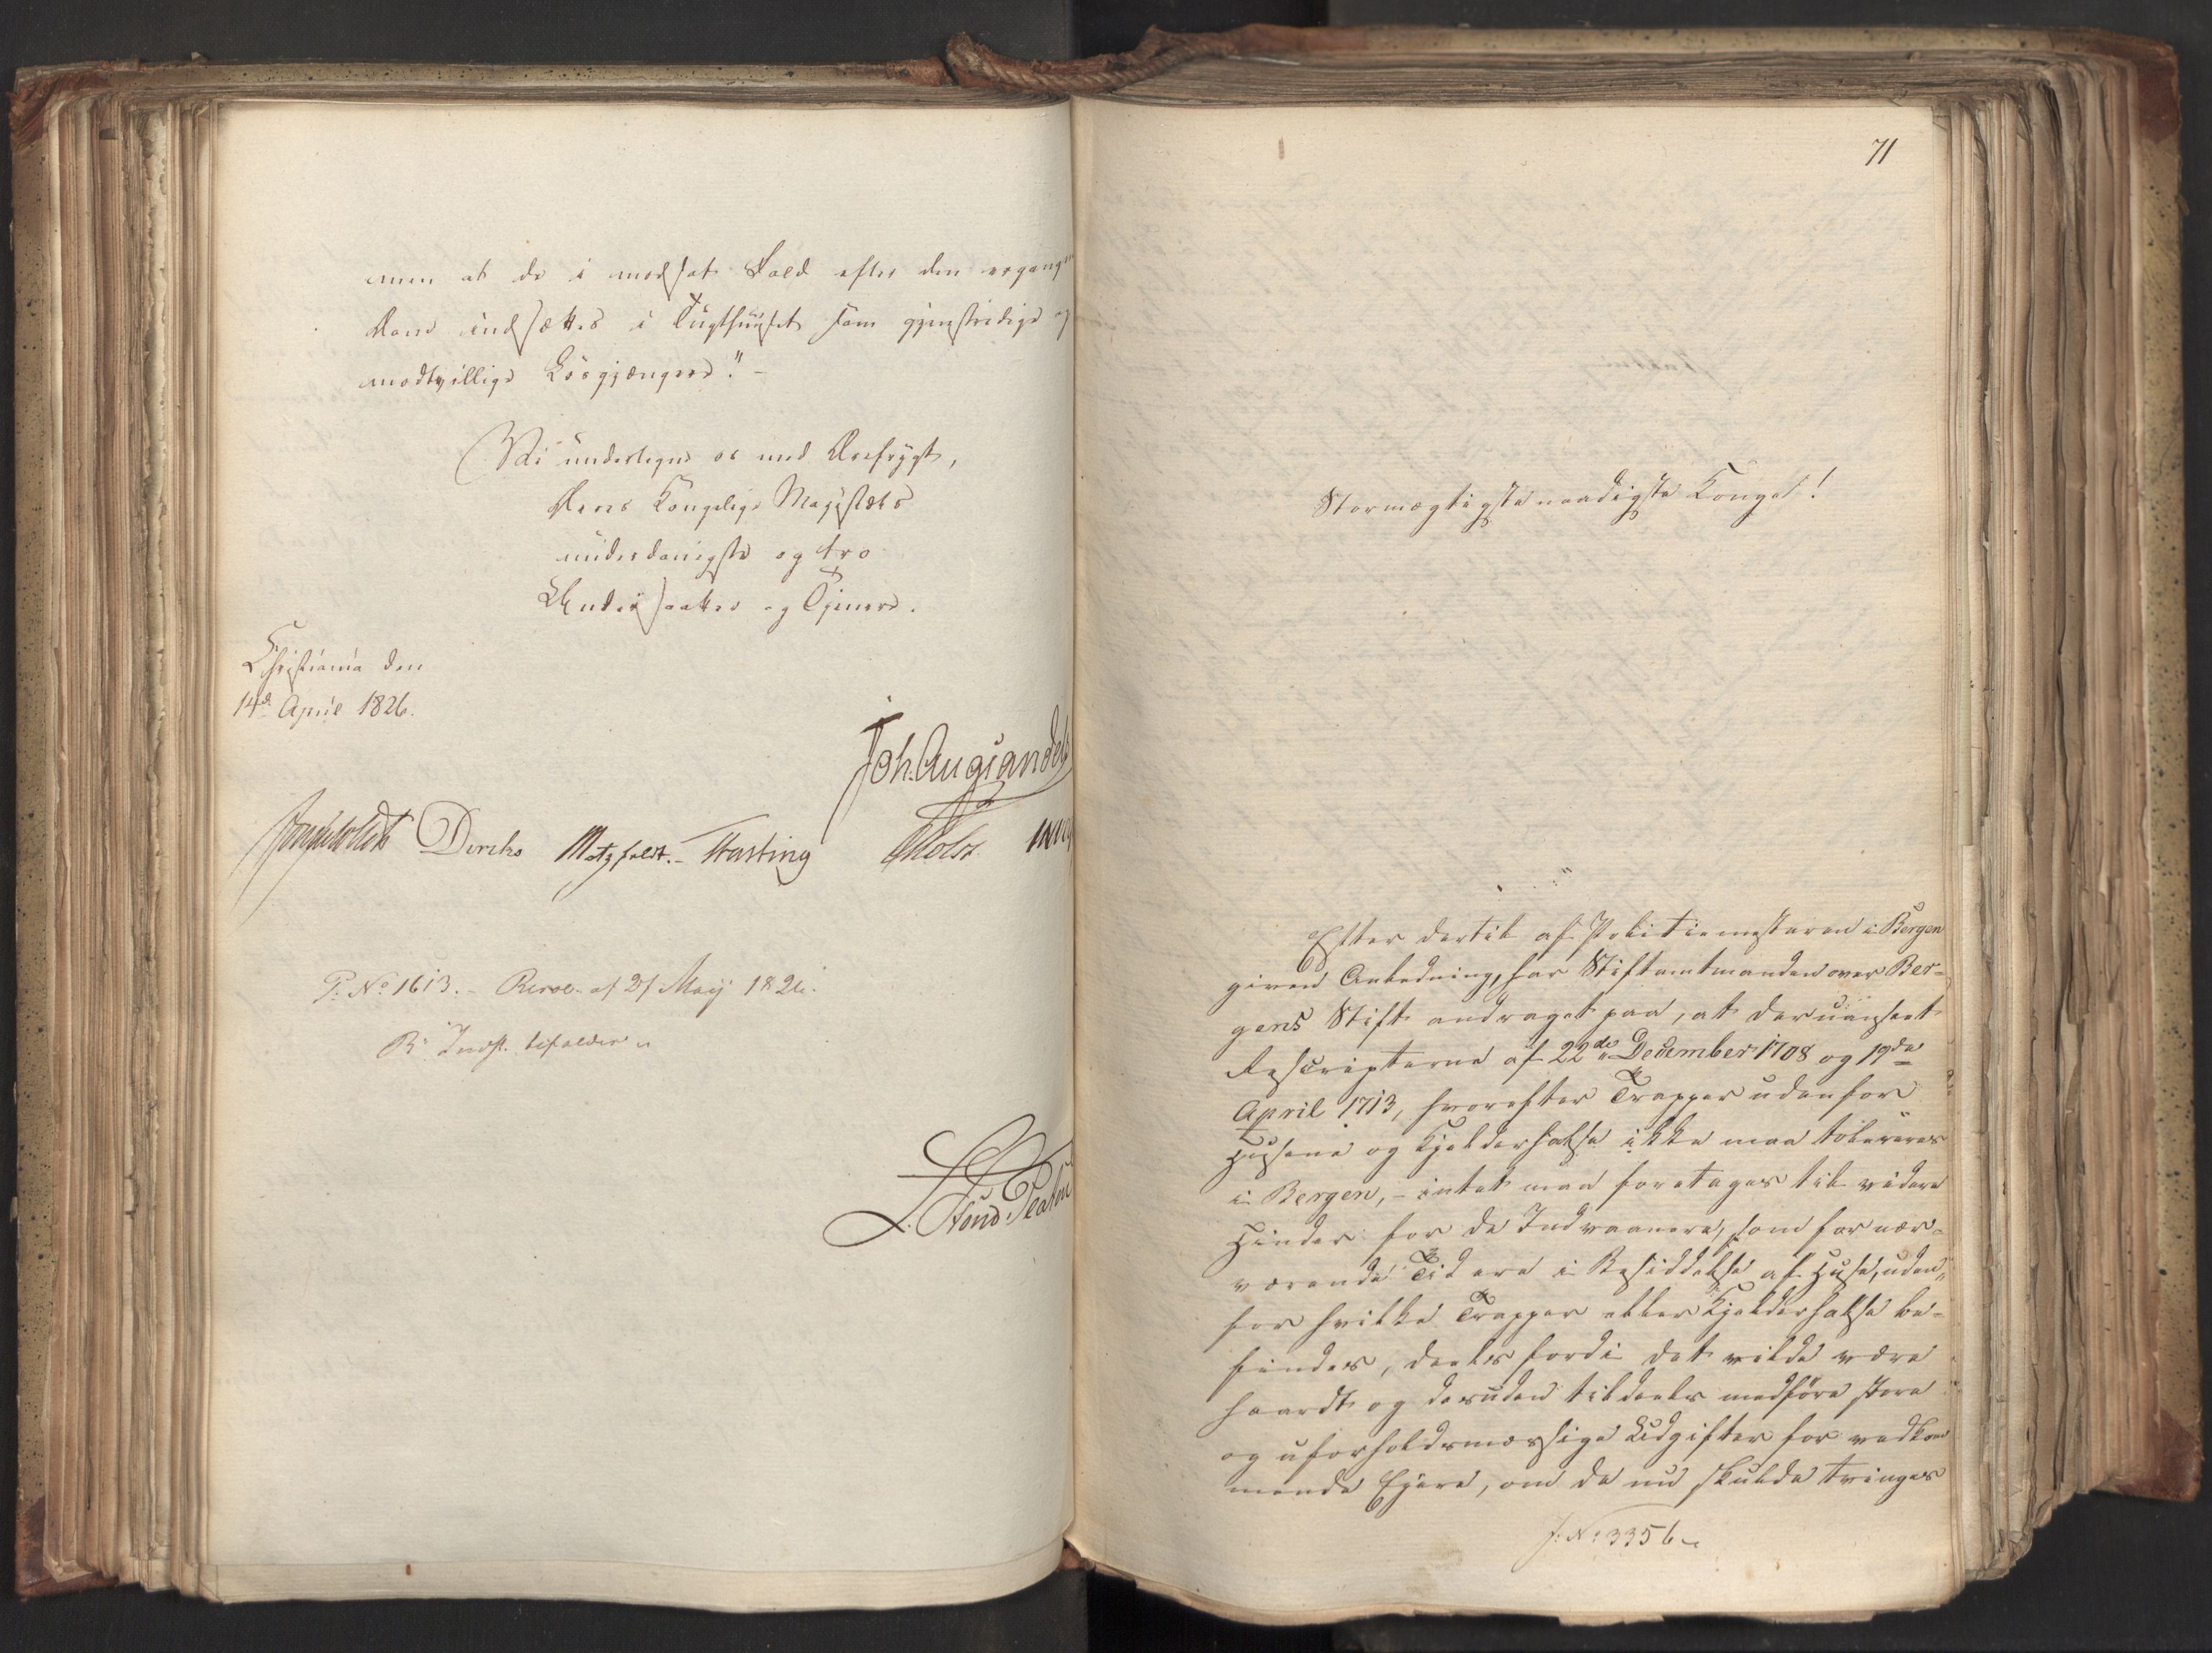 men at de i modsat Fald efter den ergangne
Dom indsættes i Tugthuuset som gjenstridige og
modtvillige Løsgjængere." –
Vi undertegne os med Ærefrygt,
Deres Kongelige Majestæts
underdanigste og tro
Undersaatter og Tjenere.
Christiania den
14de April 1826.
Joh. Aug. Sandels
Diriks Motzfeldt. – Fasting Holst
P. No 1613. – Resol. af 21 Maij 1826.
R: Indst. bifaldes
71
Stormægtigste naadigste Konge!
Efter dertil af Politiemesteren i Bergen
given Anledning, har Stiftamtmanden over Ber-
gens Stift andraget paa, at der uanseet
Rescripterne af 22de December 1708 og 19de
April 1713, hvorefter Trapper udenfor
Husene og Kjelderhalse ikke maa tolereres
i Bergen, – intet maa foretages til videre
Hinder for de Indvaanere, som for nær-
værende Tid ere i Besiddelse af Huse, uden-
for hvilke Trapper eller Kjelderhalse be-
findes, deels fordi det vilde være
haardt og desuden tildeels medføre store
og uforholdsmæssige Udgifter for vedkom
mende Ejere, om de nu skulde tvinges
J: No 3356